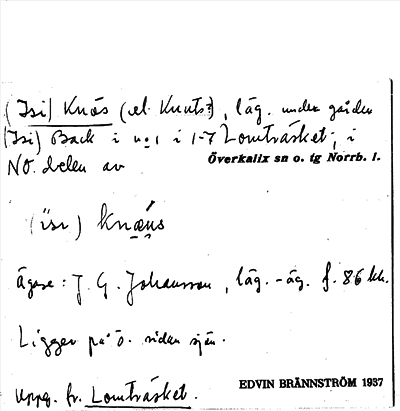 (Isi) Knös (el. Knuts?), läg. under gården
(Isi) Back i nº1 i 1-7 Lomträsket, i
NO. delen av
Överkalix sn o. tg Norrb. l.
(isi) knæns
Ägare: J. G. Johansson, läg.-äg. f. 86 kk.
Ligger på ö. sidan sjön.
Uppg. fr. Lomträsket.
EDVIN BRÄNNSTRÖM 1937